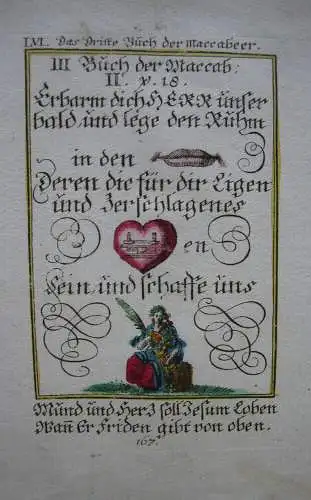 LVI. Das Dritte Buch der Maccabeer.
III Buch der Maccab:
II. v. 18.
Erbarm dich HERR unser
bald und lege den Ruhm
in den
Deren die für dir Ligen
und Zerschlagenes
en
Sein und schaffe uns
Mund und Herz soll Jesum Loben
Wañ Er Friden gibt von oben.
167.